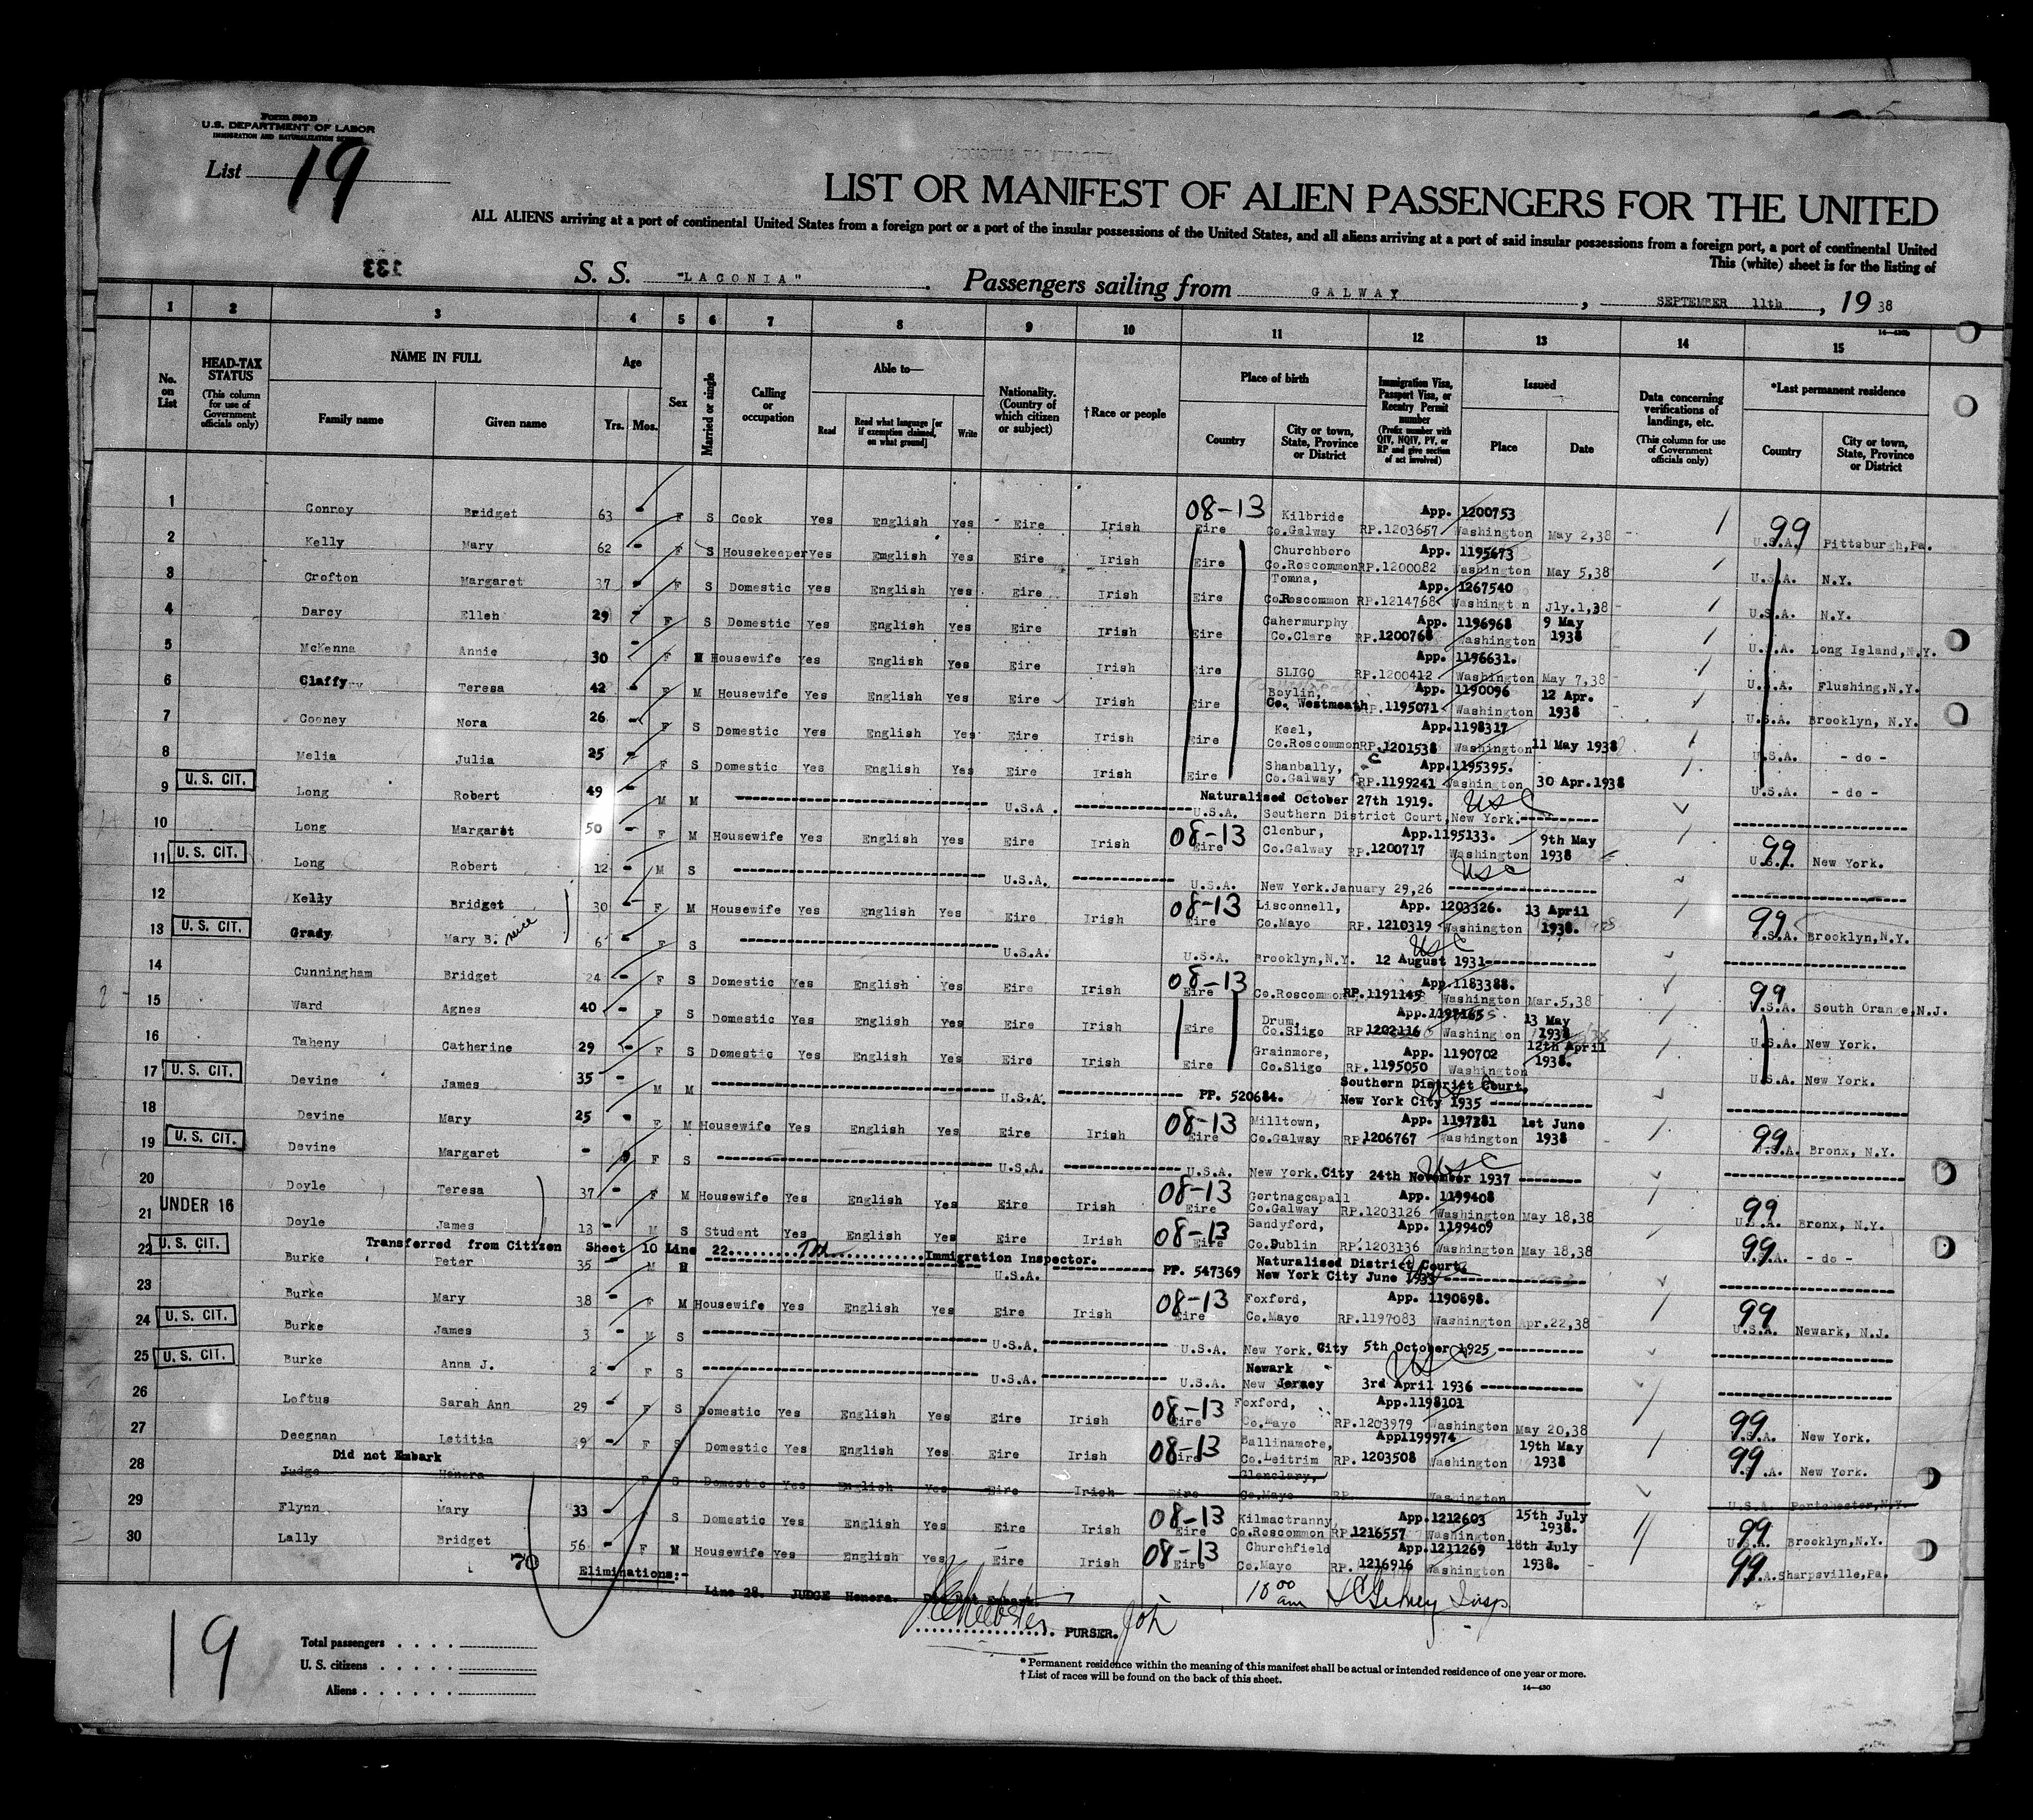 Form 500 B
U.S. DEPARTMENT OF LABOR
IMMIGRATION AND NATURALIZATION SERVICE
List 19
LIST OR MANIFEST OF ALIEN PASSENGERS FOR THE UNITED
ALL ALIENS arriving at a port of continental United States from a foreign port or a port of the insular possessions of the United States, and all aliens arriving at a port of said insular possessions from a foreign port, a port of continental United
This (white) sheet is for the listing of
133
S. S. "LACONIA" . Passengers sailing from GALWAY , SEPTEMBER 11th , 19 38
1 2 3 4 5 6 7 8 9 10 11 12 13 14 15
No. on List
HEAD-TAX STATUS (This column for use of Government officials only)
NAME IN FULL Family name Given name
Age Yrs. Mos.
Sex
Married or single
Calling or occupation
Able to— Read Read what language [or if exemption claimed, on what ground] Write
Nationality. (Country of which citizen or subject)
† Race or people
Place of birth Country City or town, State, Province or District
Immigration Visa, Passport Visa, or Reentry Permit number (Prefix number with QIV, NQIV, PV, or RP and give section of act involved)
Issued Place Date
Data concerning verifications of landings, etc. (This column for use of Government officials only)
*Last permanent residence Country City or town, State, Province or District
1 Conroy Bridget 63 - F S Cook Yes English Yes Eire Irish 08-13 Eire Kilbride Co.Galway App. 1200753 RP.1203657 Washington May 2,38 99 U.S.A. Pittsburgh,Pa.
2 Kelly Mary 62 - F S Housekeeper Yes English Yes Eire Irish Eire Churchboro Co.Roscommon App. 1195673 RP.1200082 Washington May 5,38 U.S.A. N.Y.
3 Crofton Margaret 37 - F S Domestic Yes English Yes Eire Irish Eire Tomna, Co.Roscommon App. 1267540 RP.1214768 Washington Jly.1,38 U.S.A. N.Y.
4 Darcy Ellen 29 - F S Domestic Yes English Yes Eire Irish Eire Cahermurphy Co.Clare App. 1196968 RP.1200768 Washington 9 May 1938 U.S.A. Long Island,N.Y.
5 McKenna Annie 30 - F M Housewife Yes English Yes Eire Irish Eire SLIGO App. 1196631. RP.1200412 Washington May 7,38 U.S.A. Flushing,N.Y.
6 Claffy Teresa 42 - F M Housewife Yes English Yes Eire Irish Eire Boylin, Co. Westmeath App. 1190096 RP.1195071 Washington 12 Apr. 1938 U.S.A. Brooklyn, N.Y.
7 Cooney Nora 26 - F S Domestic Yes English Yes Eire Irish Eire Keel, Co.Roscommon App.1198317 RP.1201538 Washington 11 May 1938 U.S.A. - do -
8 Melia Julia 25 - F S Domestic Yes English Yes Eire Irish Eire Shanbally, Co.Galway App.1195395. RP.1199241 Washington 30 Apr.1938 U.S.A. - do -
9 U. S. CIT. Long Robert 49 - M M U.S.A. U.S.A. Naturalised October 27th 1919. Southern District Court,New York. USC
10 Long Margaret 50 - F M Housewife Yes English Yes Eire Irish 08-13 Eire Clonbur, Co.Galway App.1195133. RP.1200717 Washington 9th May 1938 99 U.S.A. New York.
11 U. S. CIT. Long Robert 12 - M S U.S.A. U.S.A. New York.January 29,26 USC
12 Kelly Bridget 30 - F M Housewife Yes English Yes Eire Irish 08-13 Eire Lisconnell, Co.Mayo App. 1203326. RP. 1210319 Washington 13 April 1938. 99 U.S.A. Brooklyn,N.Y.
13 U. S. CIT. Grady Mary B. niece 6 - F S U.S.A. U.S.A. Brooklyn,N.Y. 12 August 1931 USC
14 Cunningham Bridget 24 - F S Domestic Yes English Yes Eire Irish 08-13 Eire Co.Roscommon App.1183388. RP.1191145 Washington Mar.5,38 99 U.S.A. South Orange,N.J.
15 Ward Agnes 40 - F S Domestic Yes English Yes Eire Irish Eire Drum, Co.Sligo RP.1202116 Washington 13 May 1938 U.S.A. New York.
16 Taheny Catherine 29 - F S Domestic Yes English Yes Eire Irish Eire Grainmore, Co.Sligo App. 1190702 RP.1195050 Washington 12th April 1938. U.S.A. New York.
17 U. S. CIT. Devine James 35 - M M U.S.A. PP. 520684. Southern District Court, New York City 1935
18 Devine Mary 25 - F M Housewife Yes English Yes Eire Irish 08-13 Eire Milltown, Co.Galway App. 1197281 RP.1206767 Washington 1st June 1938 99 U.S.A. Bronx, N.Y.
19 U. S. CIT. Devine Margaret - F S U.S.A. U.S.A. New York.City 24th November 1937 USC
20 Doyle Teresa 37 - F M Housewife Yes English Yes Eire Irish 08-13 Eire Gortnagcapall Co.Galway App. 1199408 RP.1203126 Washington May 18,38 99 U.S.A. Bronx, N.Y.
21 UNDER 16 Doyle James 13 - M S Student Yes English Yes Eire Irish 08-13 Eire Sandyford, Co.Dublin App. 1199409 RP.1203136 Washington May 18,38 99 U.S.A. - do -
Transferred from Citizen Sheet 10 Line 22 Immigration Inspector.
22 U. S. CIT. Burke Peter 35 - M M U.S.A. PP. 547369 Naturalised District Court, New York City June 1933
23 Burke Mary 38 - F M Housewife Yes English Yes Eire Irish 08-13 Eire Foxford, Co.Mayo App. 1190898. RP.1197083 Washington Apr.22,38 99 U.S.A. Newark, N.J.
24 U. S. CIT. Burke James 3 - M S U.S.A. U.S.A. New York. City 5th October 1925
25 U. S. CIT. Burke Anna J. 2 - F S U.S.A. U.S.A. Newark New Jersey 3rd April 1936 USC
26 Loftus Sarah Ann 29 - F S Domestic Yes English Yes Eire Irish 08-13 Eire Foxford, Co.Mayo App.1198101 RP.1203979 Washington May 20,38 99 U.S.A. New York.
27 Deegnan Letitia 29 - F S Domestic Yes English Yes Eire Irish 08-13 Eire Ballinamore, Co.Leitrim App1199974 RP. 1203508 Washington 19th May 1938 99 U.S.A. New York.
Did not Embark
28 Judge Honora F S Domestic Yes English Yes Eire Irish Eire Glenclary, Co.Mayo RP. Washington U.S.A. Portchester,N.Y.
29 Flynn Mary 33 - S Domestic Yes English Yes Eire Irish 08-13 Eire Kilmactranny, Co.Roscommon App.1212603 RP.1216557 Washington 15th July 1938. 99 U.S.A. Brooklyn,N.Y.
30 Lally Bridget 56 - F M Housewife Yes English Yes Eire Irish 08-13 Eire Churchfield Co.Mayo App.1211269 RP. 1216916 Washington 18th July 1938. 99 U.S.A. Sharpsville,Pa.
70
Eliminations:-
Line 28. JUDGE Honora. Did not Embark.
PURSER.
19
Total passengers
U. S. citizens
Aliens
* Permanent residence within the meaning of this manifest shall be actual or intended residence of one year or more.
† List of races will be found on the back of this sheet.
14—430